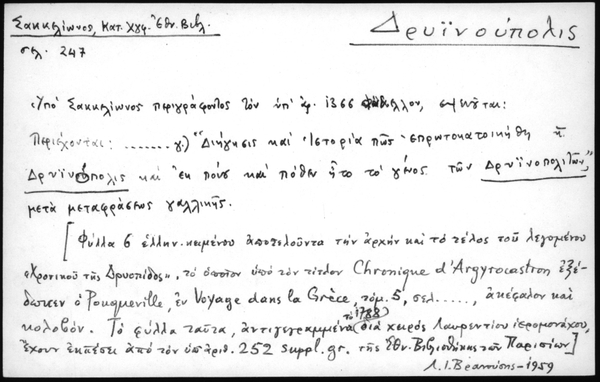 Σακκελίωνος, Κατ. Χγφ. Ἐθν. Βιβλ.
Δρυϊνούπολις
σελ. 247
Ὑπὸ Σακκελίωνος περιγράφοντος τὸν ὑπ' ἀρ. 1366, σημειοῦται:
Περιέχονται: ........ γ.) "Διήγησις καὶ Ἱστορία πῶς ἐπρωτοκατοικήθη ἡ
Δρυϊνόπολις καὶ ἐκ ποίου καὶ πόθεν ἦτο τὸ γένος τῶν Δρυϊνοπολιτῶν"
μετὰ μεταφράσεως γαλλικῆς.
[Φύλλα 6 ἑλλην. κειμένου ἀποτελοῦντα τὴν ἀρχὴν καὶ τὸ τέλος τοῦ λεγομένου
«Χρονικοῦ τῆς Δρυοπίδος», τὸ ὁποῖον ὑπὸ τὸν τίτλον Chronique d'Argyrocastron ἐξέ-
δωκεν ὁ Pouqueville, ἐν Voyage dans la Grèce, τόμ. 5, σελ....., ἀκέφαλον καὶ
κολοβόν. Τὰ φύλλα ταῦτα, ἀντιγεγραμμένα τὸ 1788 διὰ χειρὸς Λαυρεντίου ἱερομονάχου,
ἔχουν ἐκπέσει ἀπὸ τὸν ὑπ' ἀριθ. 252 suppl. gr. τῆς Ἐθν. Βιβλιοθήκης τῶν Παρισίων]
Λ. Ι. Βρανούσης - 1959